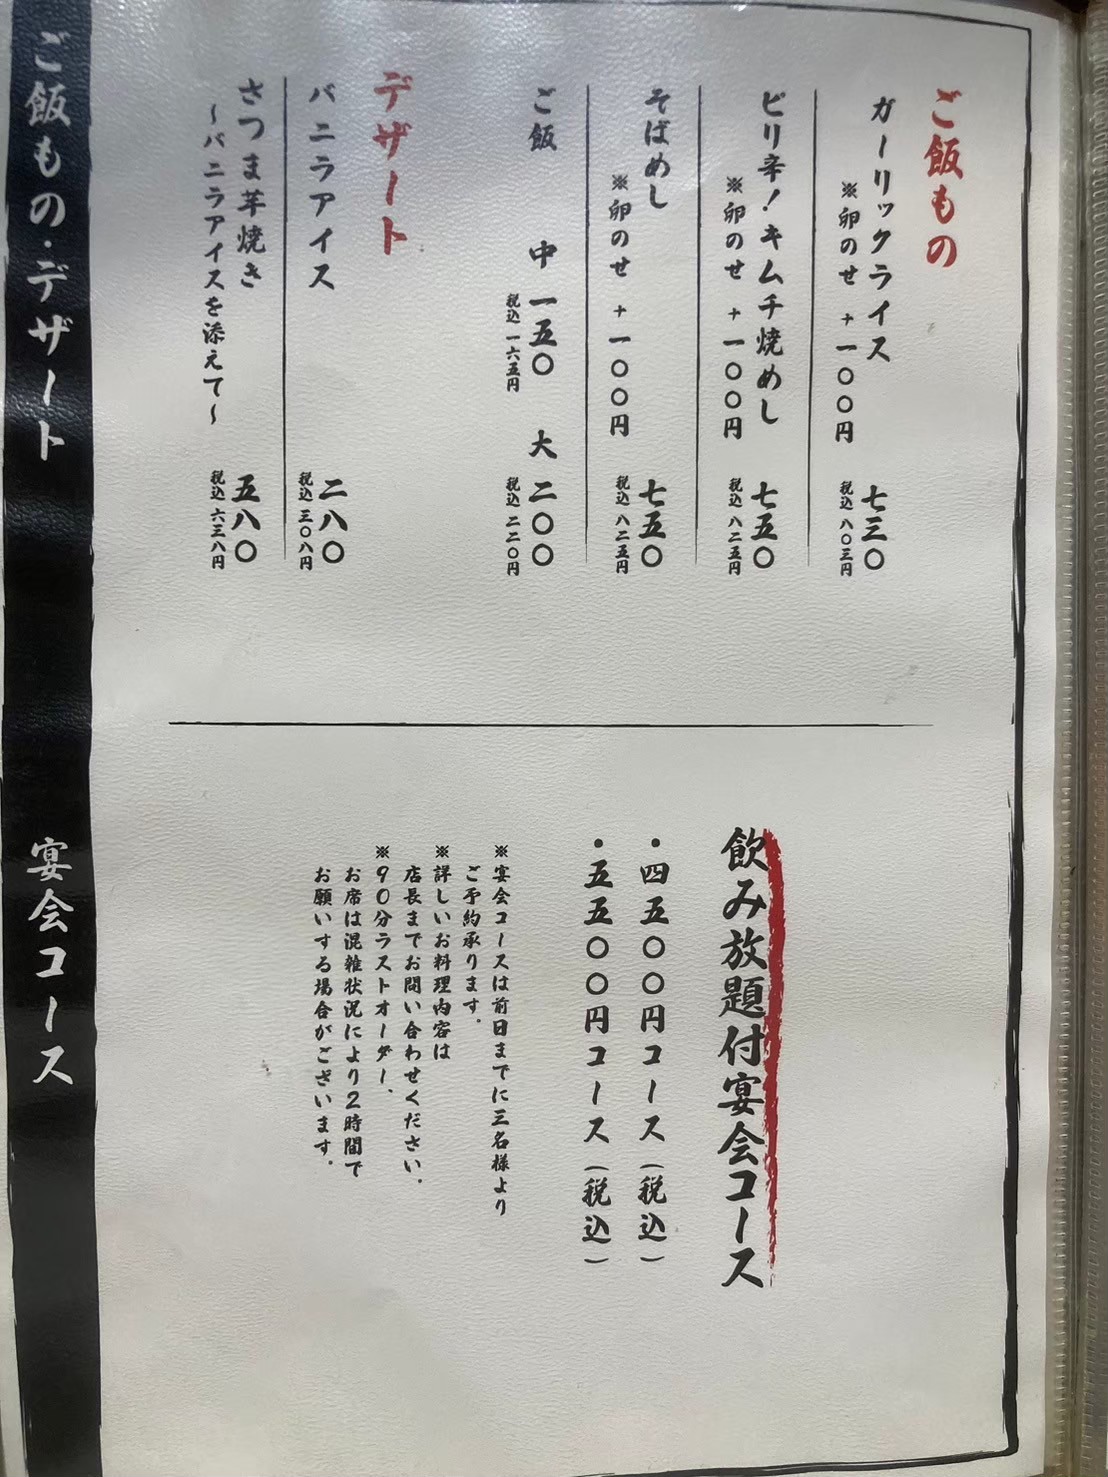 ご飯もの
ガーリックライス
七三〇
※卵のせ +一〇〇円
税込 八〇三円
ピリ辛!キムチ焼めし
七五〇
※卵のせ +一〇〇円
税込 八二五円
そばめし
七五〇
※卵のせ +一〇〇円
税込 八二五円
ご飯 中 一五〇 大 二〇〇
税込 一六五円 税込 二二〇円
デザート
バニラアイス
二八〇
税込 三〇八円
さつま芋焼き
五八〇
〜バニラアイスを添えて〜
税込 六三八円
飲み放題付宴会コース
・四五〇〇円コース(税込)
・五五〇〇円コース(税込)
※宴会コースは前日までに三名様より
ご予約承ります。
※詳しいお料理内容は
店長までお問い合わせください。
※90分ラストオーダー、
お席は混雑状況により2時間で
お願いする場合がございます。
ご飯もの・デザート
宴会コース